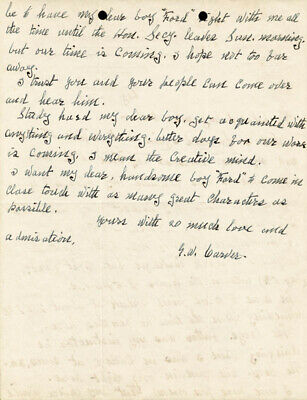 be I have my dear boy "Ford" right with me all
the time until the Hon. Secy. leaves Sun. morning.
but our time is coming, I hope not too far
away.
I trust you and your people can come over
and hear him.
Study hard my dear boy, get acquainted with
anything and everything. better days for our work
is coming, I mean the Creative mind.
I want my dear, handsome boy "Ford" to come in
close touch with as many great characters as
possible.
Yours with so much love and
admiration,
G.W. Carver.